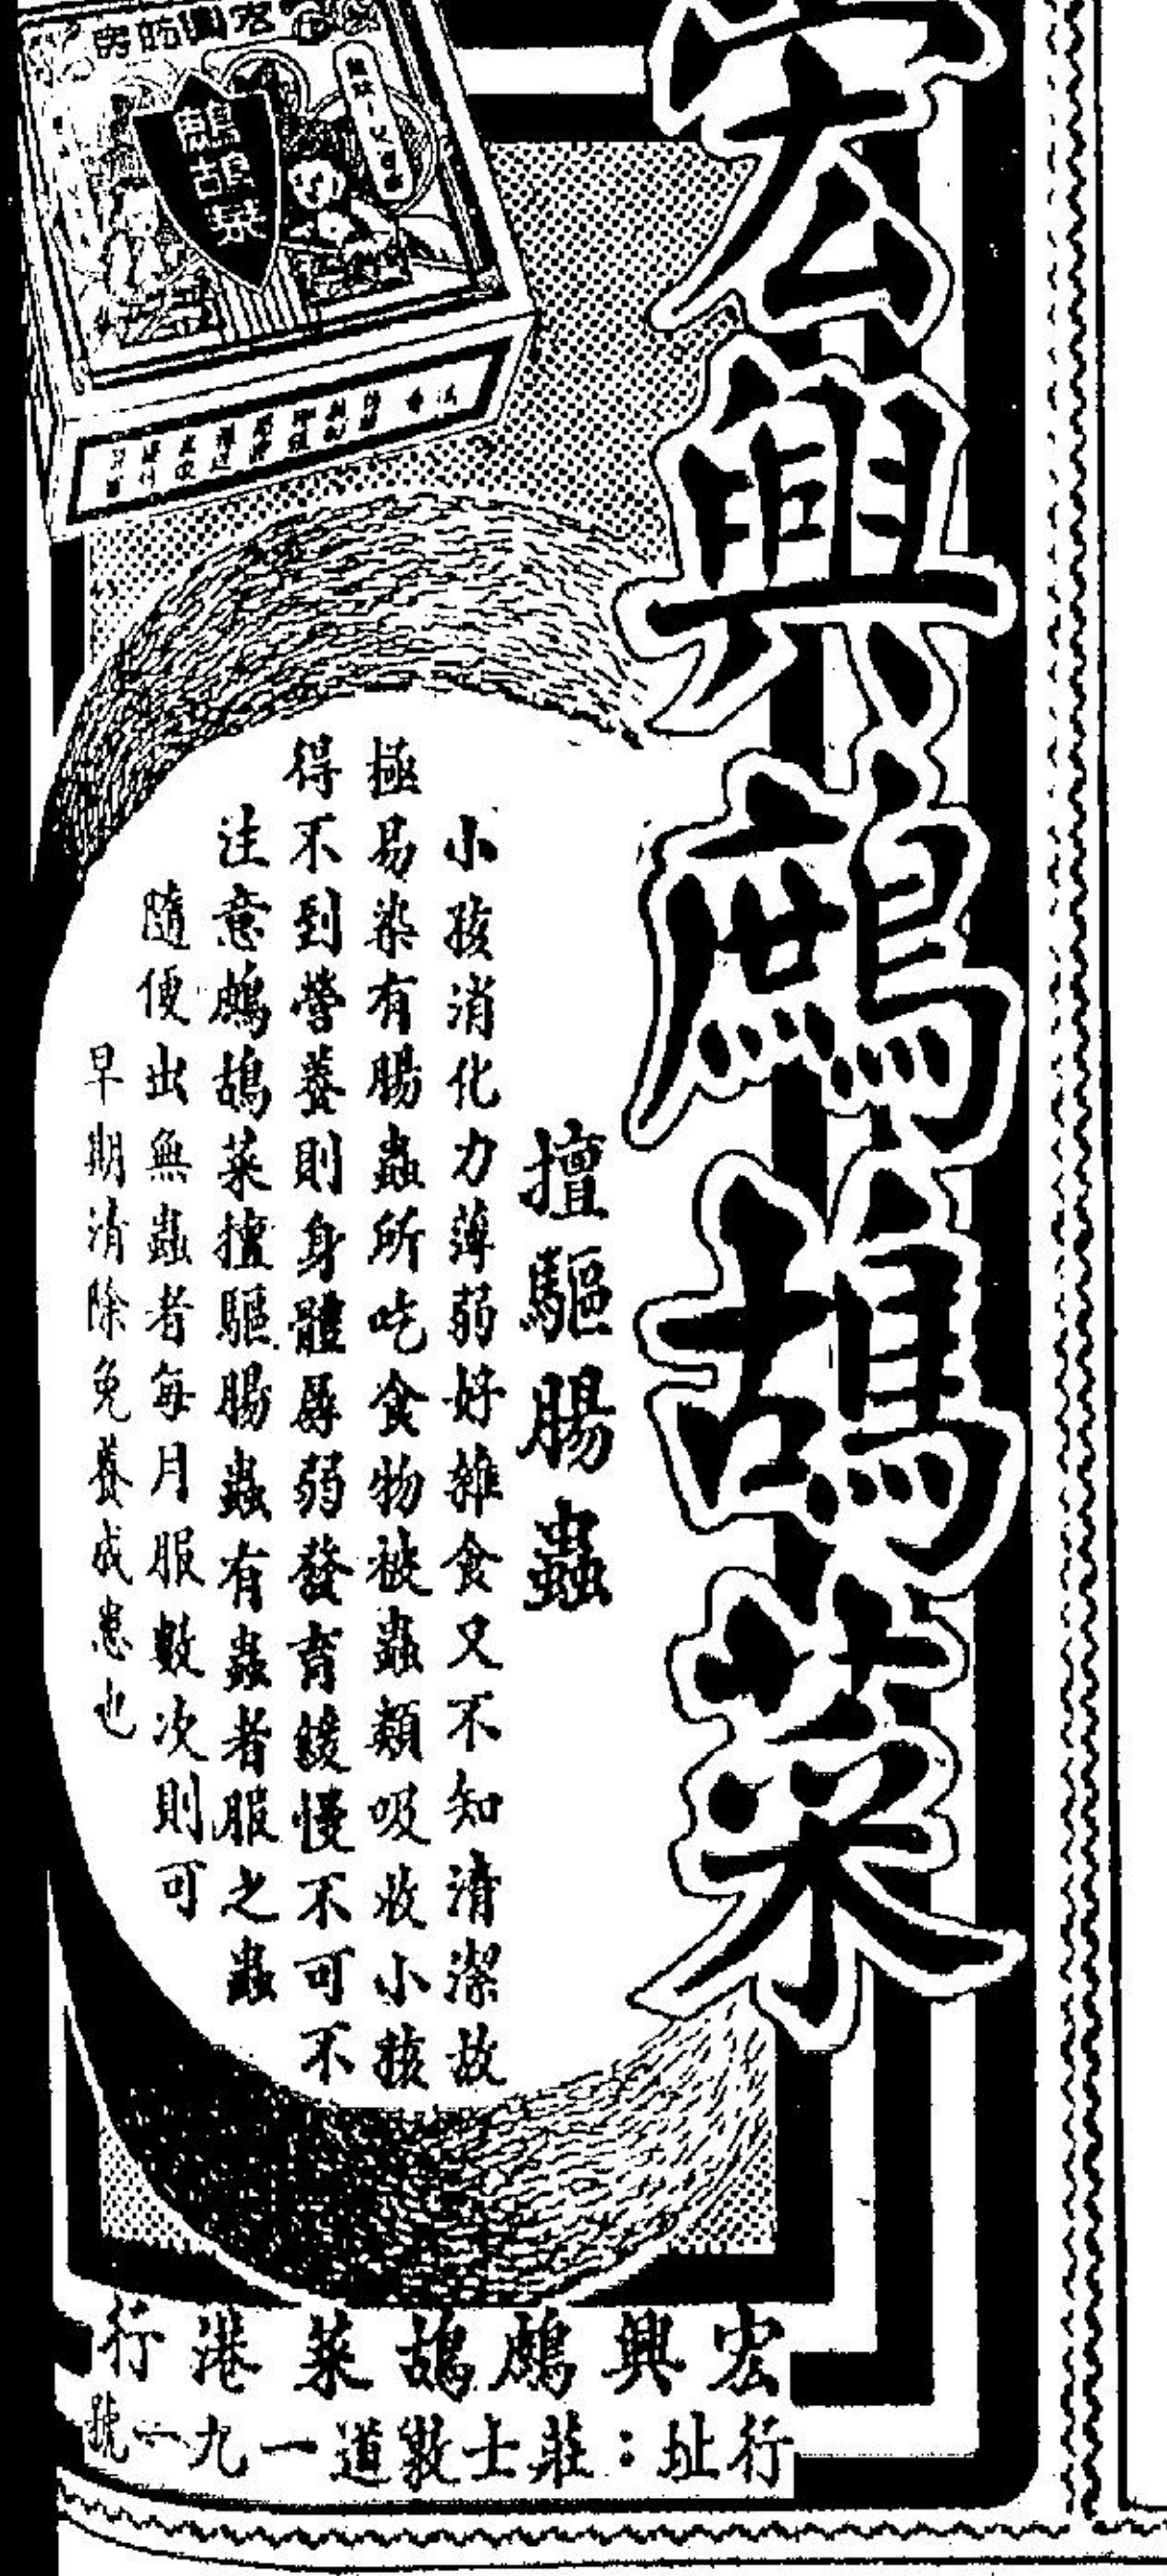 宏興鷓鴣菜
擅驅腸蟲
小孩消化力薄弱好雜食又不知清潔故
極易染有腸蟲所吃食物被蟲類吸收小孩
得不到營養則身體孱弱發育緩慢不可不
注意鷓鴣菜擅驅腸蟲有蟲者服之蟲
隨便出無蟲者每月服數次則可
早期清除免養成患也
鷓鴣菜
宏興鷓鴣菜港行
行址：莊士敦道一九一號